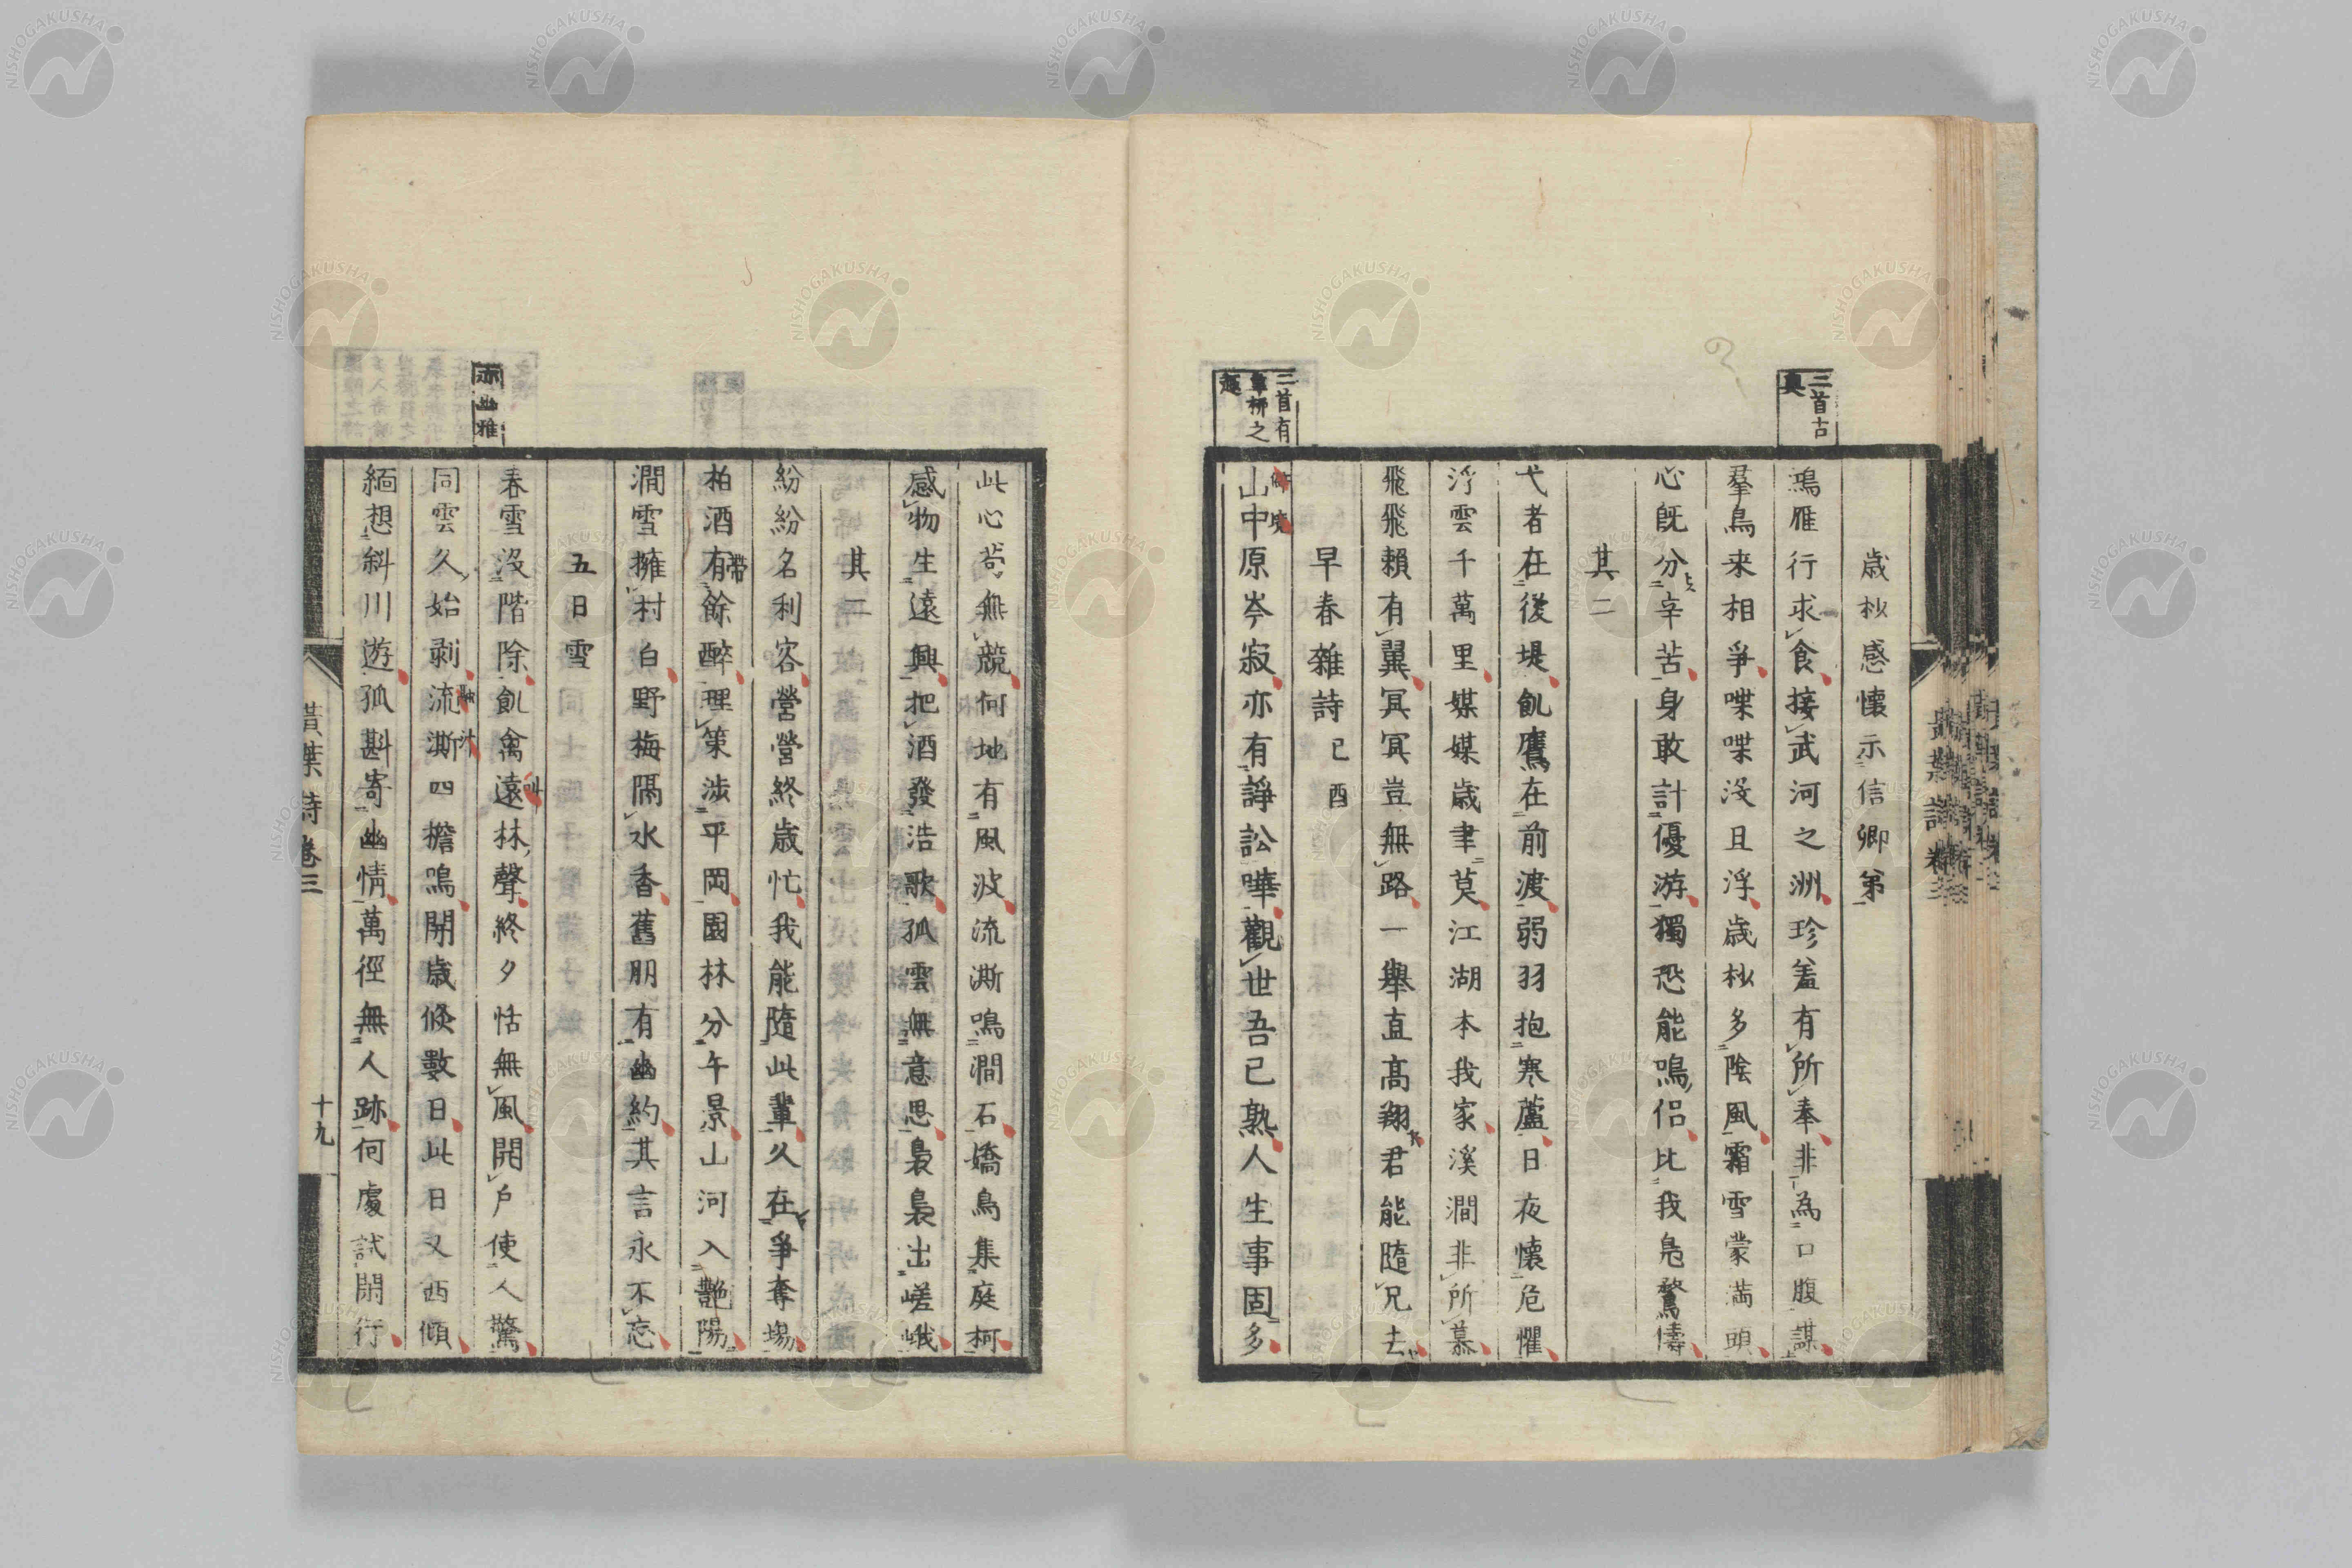 二首古
奥
歳杪感懷示信卿弟
鴻雁行求食接武河之洲珍羞有所奉非為口腹謀
羣鳥来相爭喋喋没且浮歳杪多陰風霜雪蒙満頭
心既分辛苦身敢計優游獨恐能鳴侶比我鳧鶩儔
其二
弋者在後堤飢鷹在前渡弱羽抱寒蘆日夜懷危懼
浮雲千萬里媒媒歳聿莫江湖本我家溪澗非所慕
飛飛頼有翼冥冥豈無路一舉直髙翔君能隨兄去
早春雑詩己酉
二首有
韋栁之
趣
山中原岑寂亦有諍訟嘩觀世吾已熟人生事固多
此心苟無競何地有風波流澌鳴澗石嬌鳥集庭柯
感物生遠興把酒發浩歌孤雲無意思裊裊出嵯峨
其二
紛紛名利客營營終歳忙我能隨此輩久在爭奪場
柏酒有餘醉理策渉平岡園林分午景山河入艷陽
帶
澗雪擁村白野梅隔水香舊朋有幽約其言永不忘
五日雪
亦幽雅
春雪没階除飢禽遠林聲終夕恬無風開戸使人驚
叫
同雲久始剥流澌四檐鳴開歳倐數日此日又西傾
緬想斜川遊孤斟寄幽情萬徑無人跡何處試閑行
黄葉詩巻三
十九
NISHOGAKUSHA